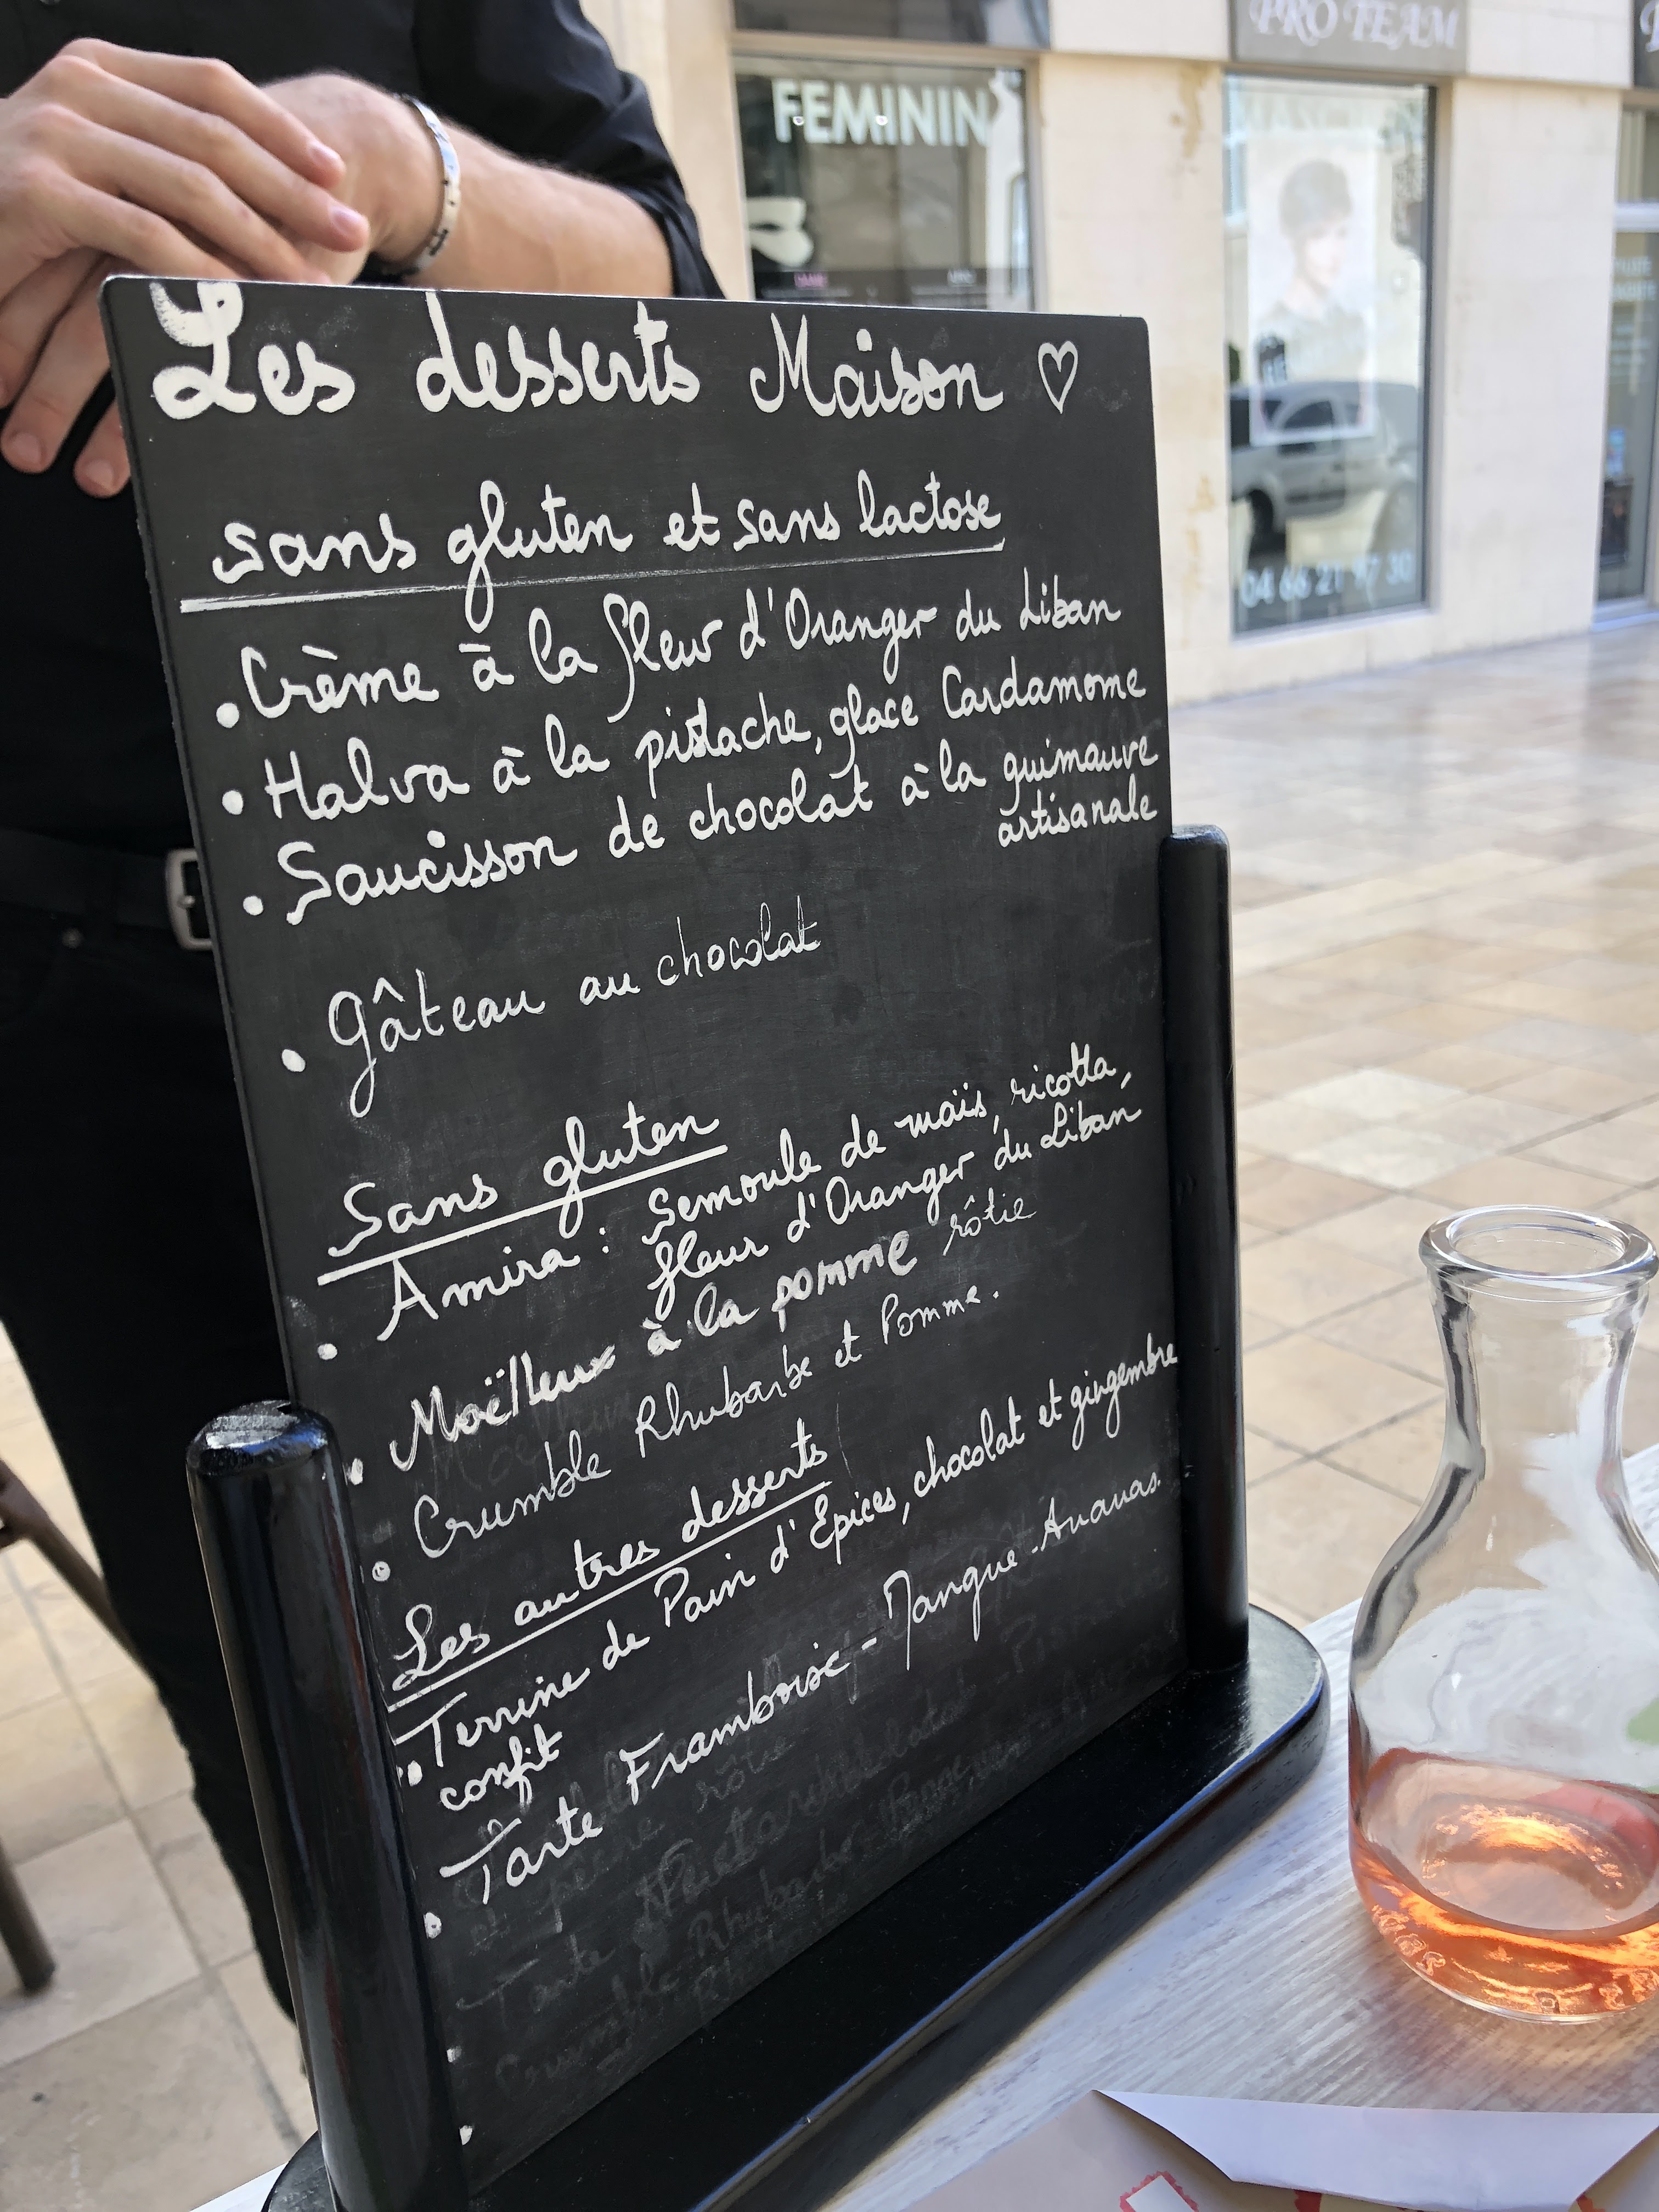 PRO TEAM
FEMININ
04 66 21 97 30
Les desserts Maison
sans gluten et sans lactose
• Crème à la fleur d'Oranger du Liban
• Halva à la pistache, glace Cardamome
• Saucisson de chocolat à la guimauve
artisanale
• Gâteau au chocolat
Sans gluten
• Amira : Semoule de maïs, ricotta,
fleur d'Oranger du Liban
• Moëlleux à la pomme rôtie
• Crumble Rhubarbe et Pomme.
Les autres desserts
• Terrine de Pain d'Epices, chocolat et gingembre
confit
• Tarte Framboise - Mangue - Ananas.